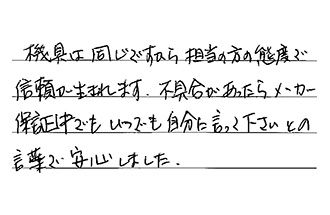 機具は同じですから相当の方の態度で
信頼が生まれます。不具合があったらメーカー
保証中でもいつでも自分に言って下さいとの
言葉で安心しました。